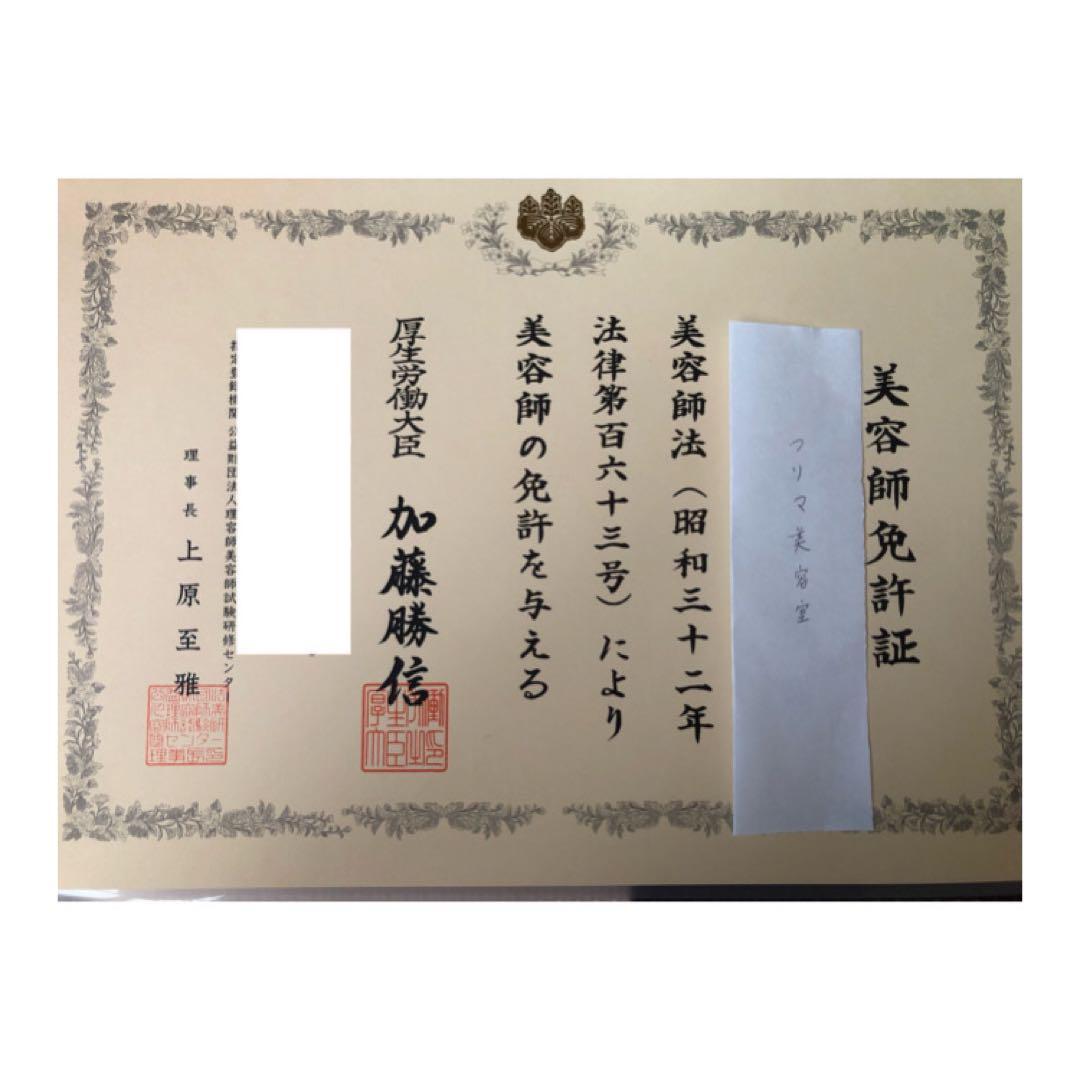 美容師免許証
フリマ美容室
美容師法（昭和三十二年
法律第百六十三号）により
美容師の免許を与える
厚生労働大臣 加藤勝信
指定登録機関 公益財団法人理容師美容師試験研修センター
理事長 上原至雅